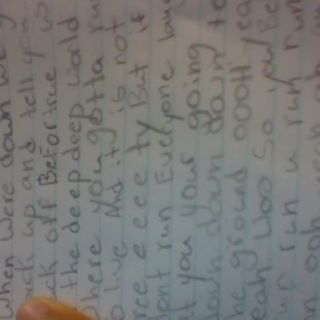 When were down we
up and tell you
ck off Before true
the deep deep world
where you gotta run
o live And it is not
ree e eee ty But if
dont run Everyone
at you your going
down down down to
he ground ooOH yea
eah Woo So you Be
un run u run run
ooh yeah